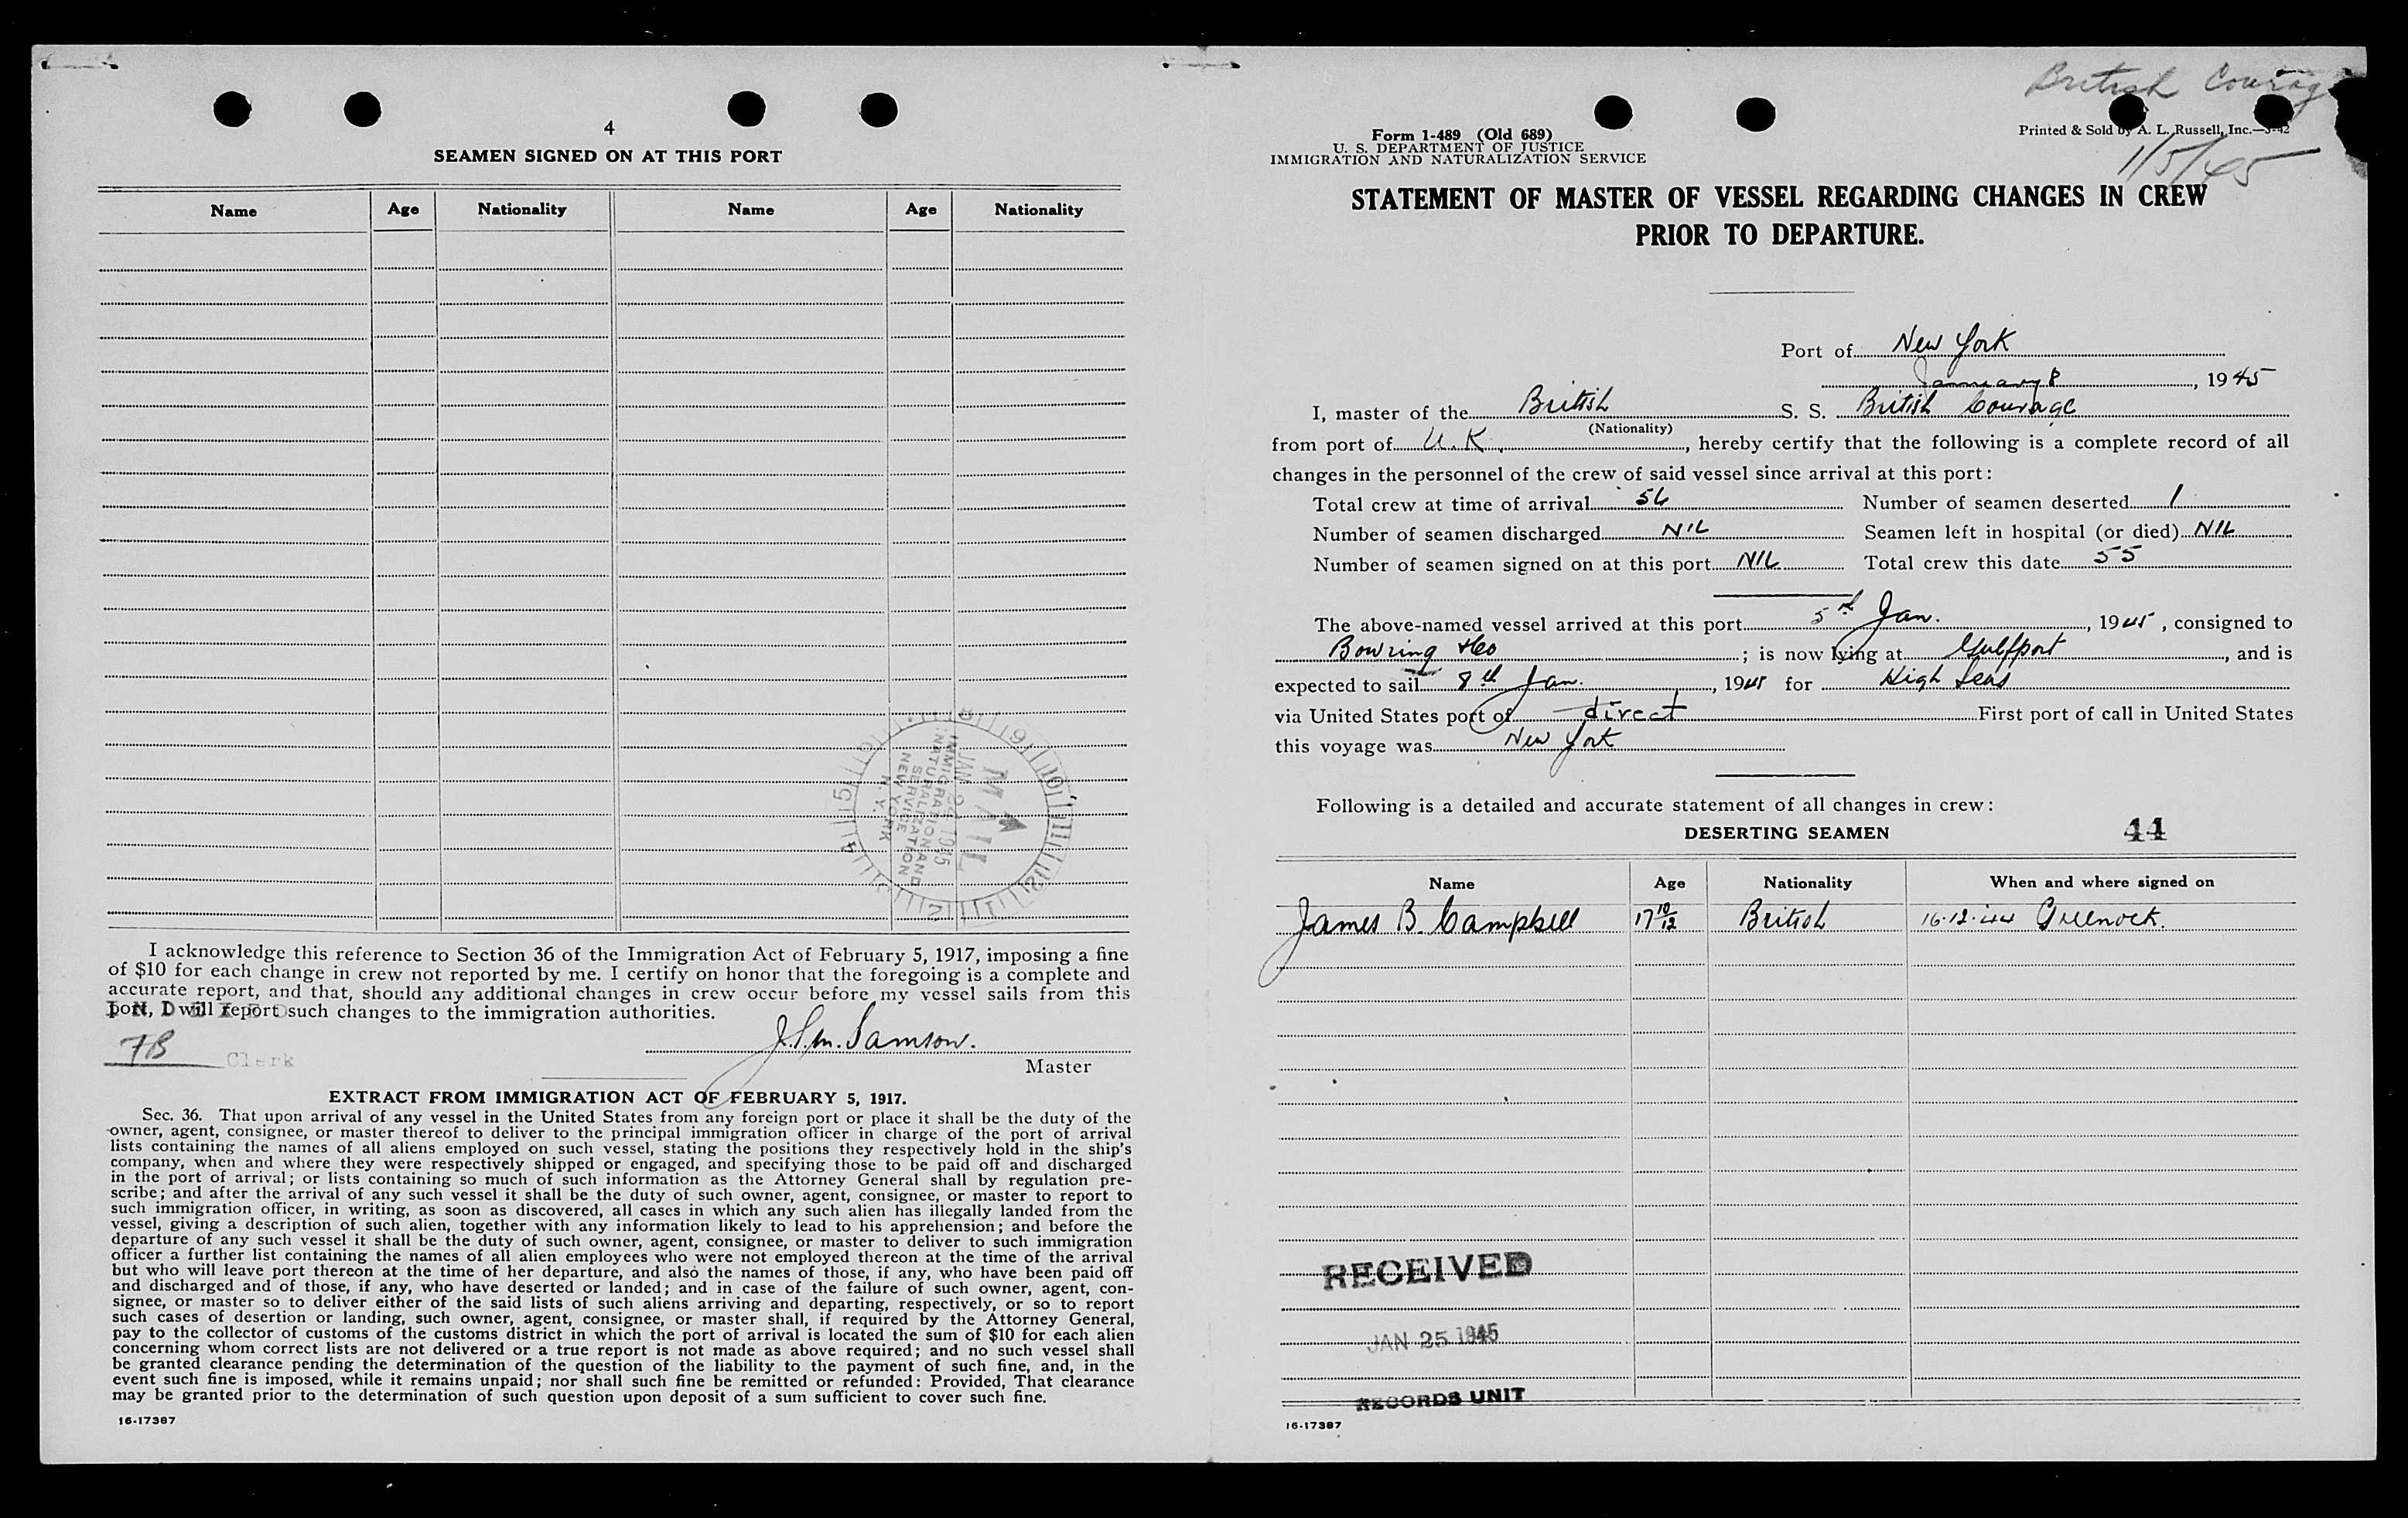 4
SEAMEN SIGNED ON AT THIS PORT
Name Age Nationality Name Age Nationality
MAIL
JAN 24 1945
IMMIGRATION AND
NATURALIZATION
SERVICE
NEW YORK
N. Y.
I acknowledge this reference to Section 36 of the Immigration Act of February 5, 1917, imposing a fine
of $10 for each change in crew not reported by me. I certify on honor that the foregoing is a complete and
accurate report, and that, should any additional changes in crew occur before my vessel sails from this
port, I will report such changes to the immigration authorities.
J.S.M. Samson.
FB Clerk
Master
EXTRACT FROM IMMIGRATION ACT OF FEBRUARY 5, 1917.
Sec. 36. That upon arrival of any vessel in the United States from any foreign port or place it shall be the duty of the
owner, agent, consignee, or master thereof to deliver to the principal immigration officer in charge of the port of arrival
lists containing the names of all aliens employed on such vessel, stating the positions they respectively hold in the ship's
company, when and where they were respectively shipped or engaged, and specifying those to be paid off and discharged
in the port of arrival; or lists containing so much of such information as the Attorney General shall by regulation pre-
scribe; and after the arrival of any such vessel it shall be the duty of such owner, agent, consignee, or master to report to
such immigration officer, in writing, as soon as discovered, all cases in which any such alien has illegally landed from the
vessel, giving a description of such alien, together with any information likely to lead to his apprehension; and before the
departure of any such vessel it shall be the duty of such owner, agent, consignee, or master to deliver to such immigration
officer a further list containing the names of all alien employees who were not employed thereon at the time of the arrival
but who will leave port thereon at the time of her departure, and also the names of those, if any, who have been paid off
and discharged and of those, if any, who have deserted or landed; and in case of the failure of such owner, agent, con-
signee, or master so to deliver either of the said lists of such aliens arriving and departing, respectively, or so to report
such cases of desertion or landing, such owner, agent, consignee, or master shall, if required by the Attorney General,
pay to the collector of customs of the customs district in which the port of arrival is located the sum of $10 for each alien
concerning whom correct lists are not delivered or a true report is not made as above required; and no such vessel shall
be granted clearance pending the determination of the question of the liability to the payment of such fine, and, in the
event such fine is imposed, while it remains unpaid; nor shall such fine be remitted or refunded: Provided, That clearance
may be granted prior to the determination of such question upon deposit of a sum sufficient to cover such fine.
16-17387
British Courag
1/5/45
Form 1-489 (Old 689)
U. S. DEPARTMENT OF JUSTICE
IMMIGRATION AND NATURALIZATION SERVICE
Printed & Sold by A. L. Russell, Inc.—3-42
STATEMENT OF MASTER OF VESSEL REGARDING CHANGES IN CREW
PRIOR TO DEPARTURE.
Port of New York
January 8, 1945
I, master of the British S. S. British Courage
(Nationality)
from port of U.K., hereby certify that the following is a complete record of all
changes in the personnel of the crew of said vessel since arrival at this port:
Total crew at time of arrival 56 Number of seamen deserted 1
Number of seamen discharged NIL Seamen left in hospital (or died) NIL
Number of seamen signed on at this port NIL Total crew this date 55
The above-named vessel arrived at this port 5th Jan., 1945, consigned to
Bowring & Co; is now lying at Gulfport, and is
expected to sail 8th Jan., 1945 for High Seas
via United States port of direct First port of call in United States
this voyage was New York
Following is a detailed and accurate statement of all changes in crew:
DESERTING SEAMEN 44
Name Age Nationality When and where signed on
James B. Campbell 17 10/12 British 16·12·44 Greenock.
RECEIVED
JAN 25 1945
RECORDS UNIT
16-17387